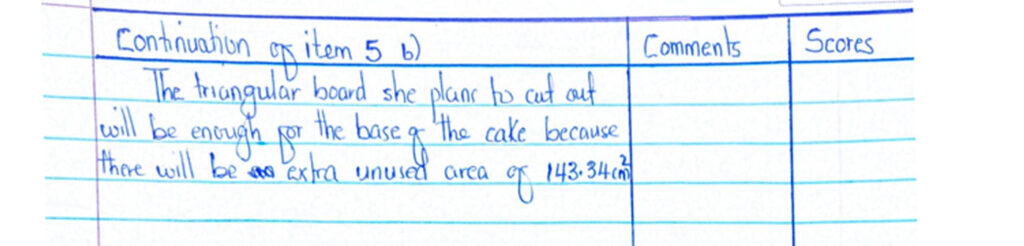 Continuation of item 5 b)
Comments
Scores
The triangular board she plans to cut out
will be enough for the base of the cake because
there will be extra unused area of 143.34cm²